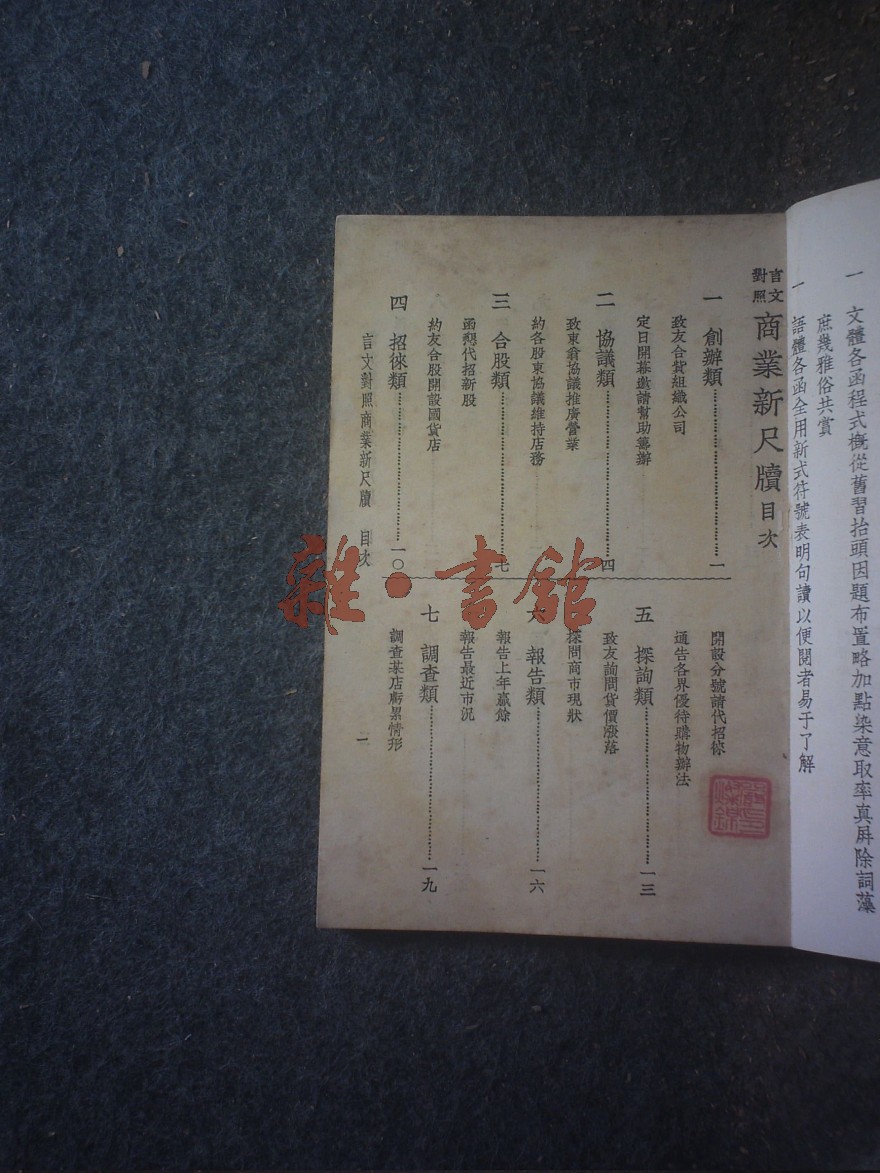 一 文體各函程式概從舊習抬頭因題布置略加點染意取率真屏除詞藻
庶幾雅俗共賞
一 語體各函全用新式符號表明句讀以便閱者易于了解
言文對照 商業新尺牘 目次
一 創辦類 一
致友合貲組織公司
定日開幕邀請幫助籌辦
二 協議類 四
致東翁協議推廣營業
約各股東協議維持店務
三 合股類 七
函懇代招新股
約友合股開設國貨店
四 招徠類 一〇
開設分號請代招徠
通告各界優待購物辦法
五 探詢類 一三
致友詢問貨價漲落
探問商市現狀
六 報告類 一六
報告上年贏餘
報告最近市況
七 調查類 一九
調查某店虧累情形
言文對照商業新尺牘 目次 一
雜·書館